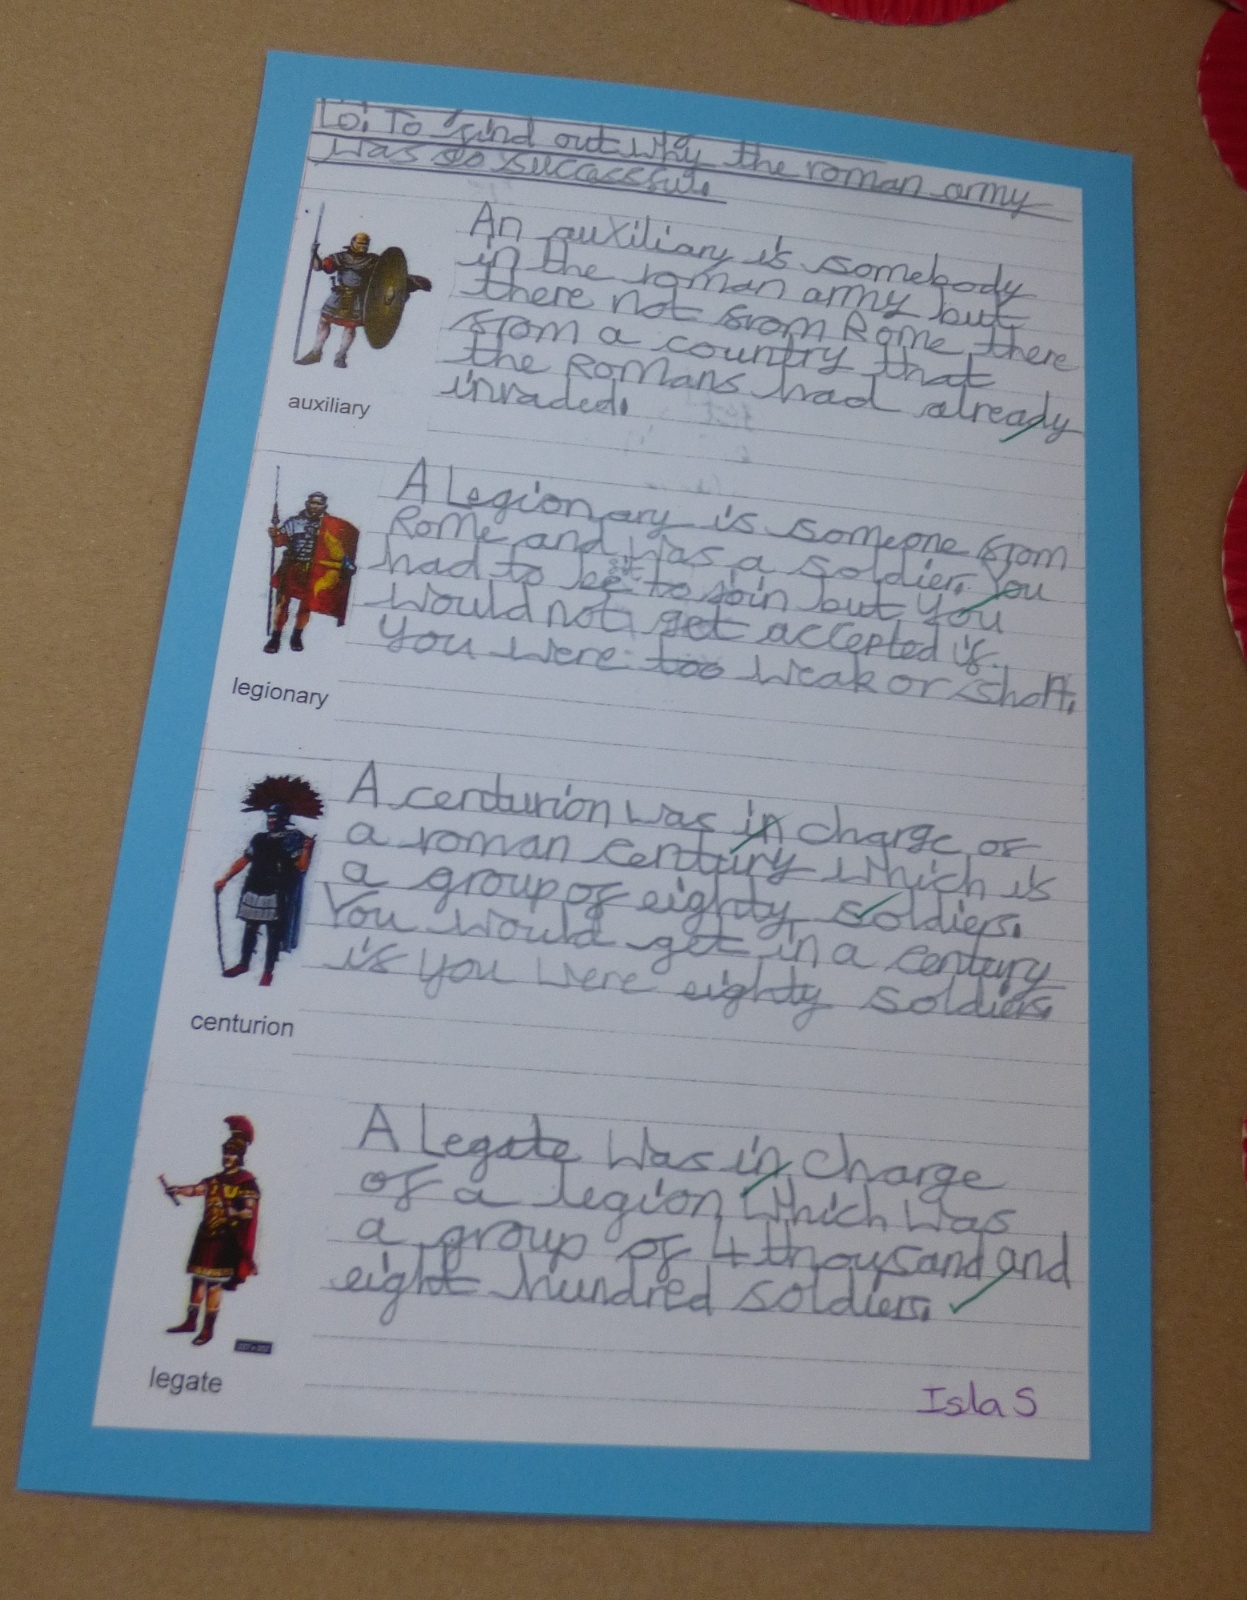 Lo: To find out why the roman army
was so successful.
An auxiliary is somebody
in the roman army but
there not from Rome, there
from a country that
the Romans had already
invaded.
auxiliary
A Legionary is someone from
Rome and was a soldier. You
had to be fit to join but you
would not get accepted if
you were too weak or short.
legionary
A centurion was in charge of
a roman century which is
a group of eighty soldiers.
You would get in a century
if you were eighty soldiers.
centurion
A Legate was in charge
of a legion which was
a group of 4 thousand and
eight hundred soldiers.
legate
Isla S